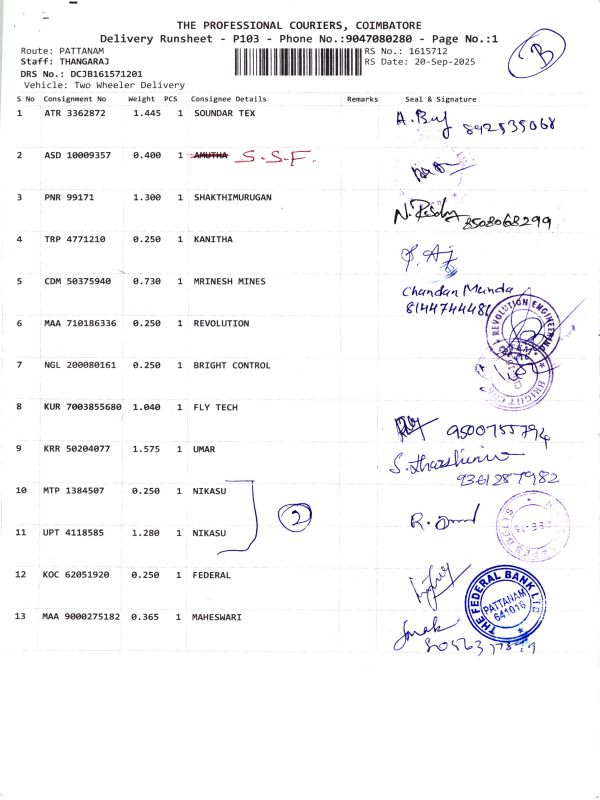 THE PROFESSIONAL COURIERS, COIMBATORE
Delivery Runsheet - P103 - Phone No.:9047080280 - Page No.:1
B
Route: PATTANAM
RS No.: 1615712
Staff: THANGARAJ
RS Date: 20-Sep-2025
DRS No.: DCJB161571201
Vehicle: Two Wheeler Delivery
S No Consignment No Weight PCS Consignee Details Remarks Seal & Signature
1 ATR 3362872 1.445 1 SOUNDAR TEX
892535068
2 ASD 10009357 0.400 1 AMUTHA S.S.F.
3 PNR 99171 1.300 1 SHAKTHIMURUGAN
8508068299
4 TRP 4771210 0.250 1 KANITHA
5 CDM 50375940 0.730 1 MRINESH MINES Chandan Munda
8144744481
6 MAA 710186336 0.250 1 REVOLUTION
REVOLUTION ENGINEERING
7 NGL 200080161 0.250 1 BRIGHT CONTROL
BRIGHT
8 KUR 7003855680 1.040 1 FLY TECH
9500755794
9 KRR 50204077 1.575 1 UMAR
9361287982
10 MTP 1384507 0.250 1 NIKASU
2
11 UPT 4118585 1.280 1 NIKASU
12 KOC 62051920 0.250 1 FEDERAL
THE FEDERAL BANK LTD
PATTANAM
641016
13 MAA 9000275182 0.365 1 MAHESWARI